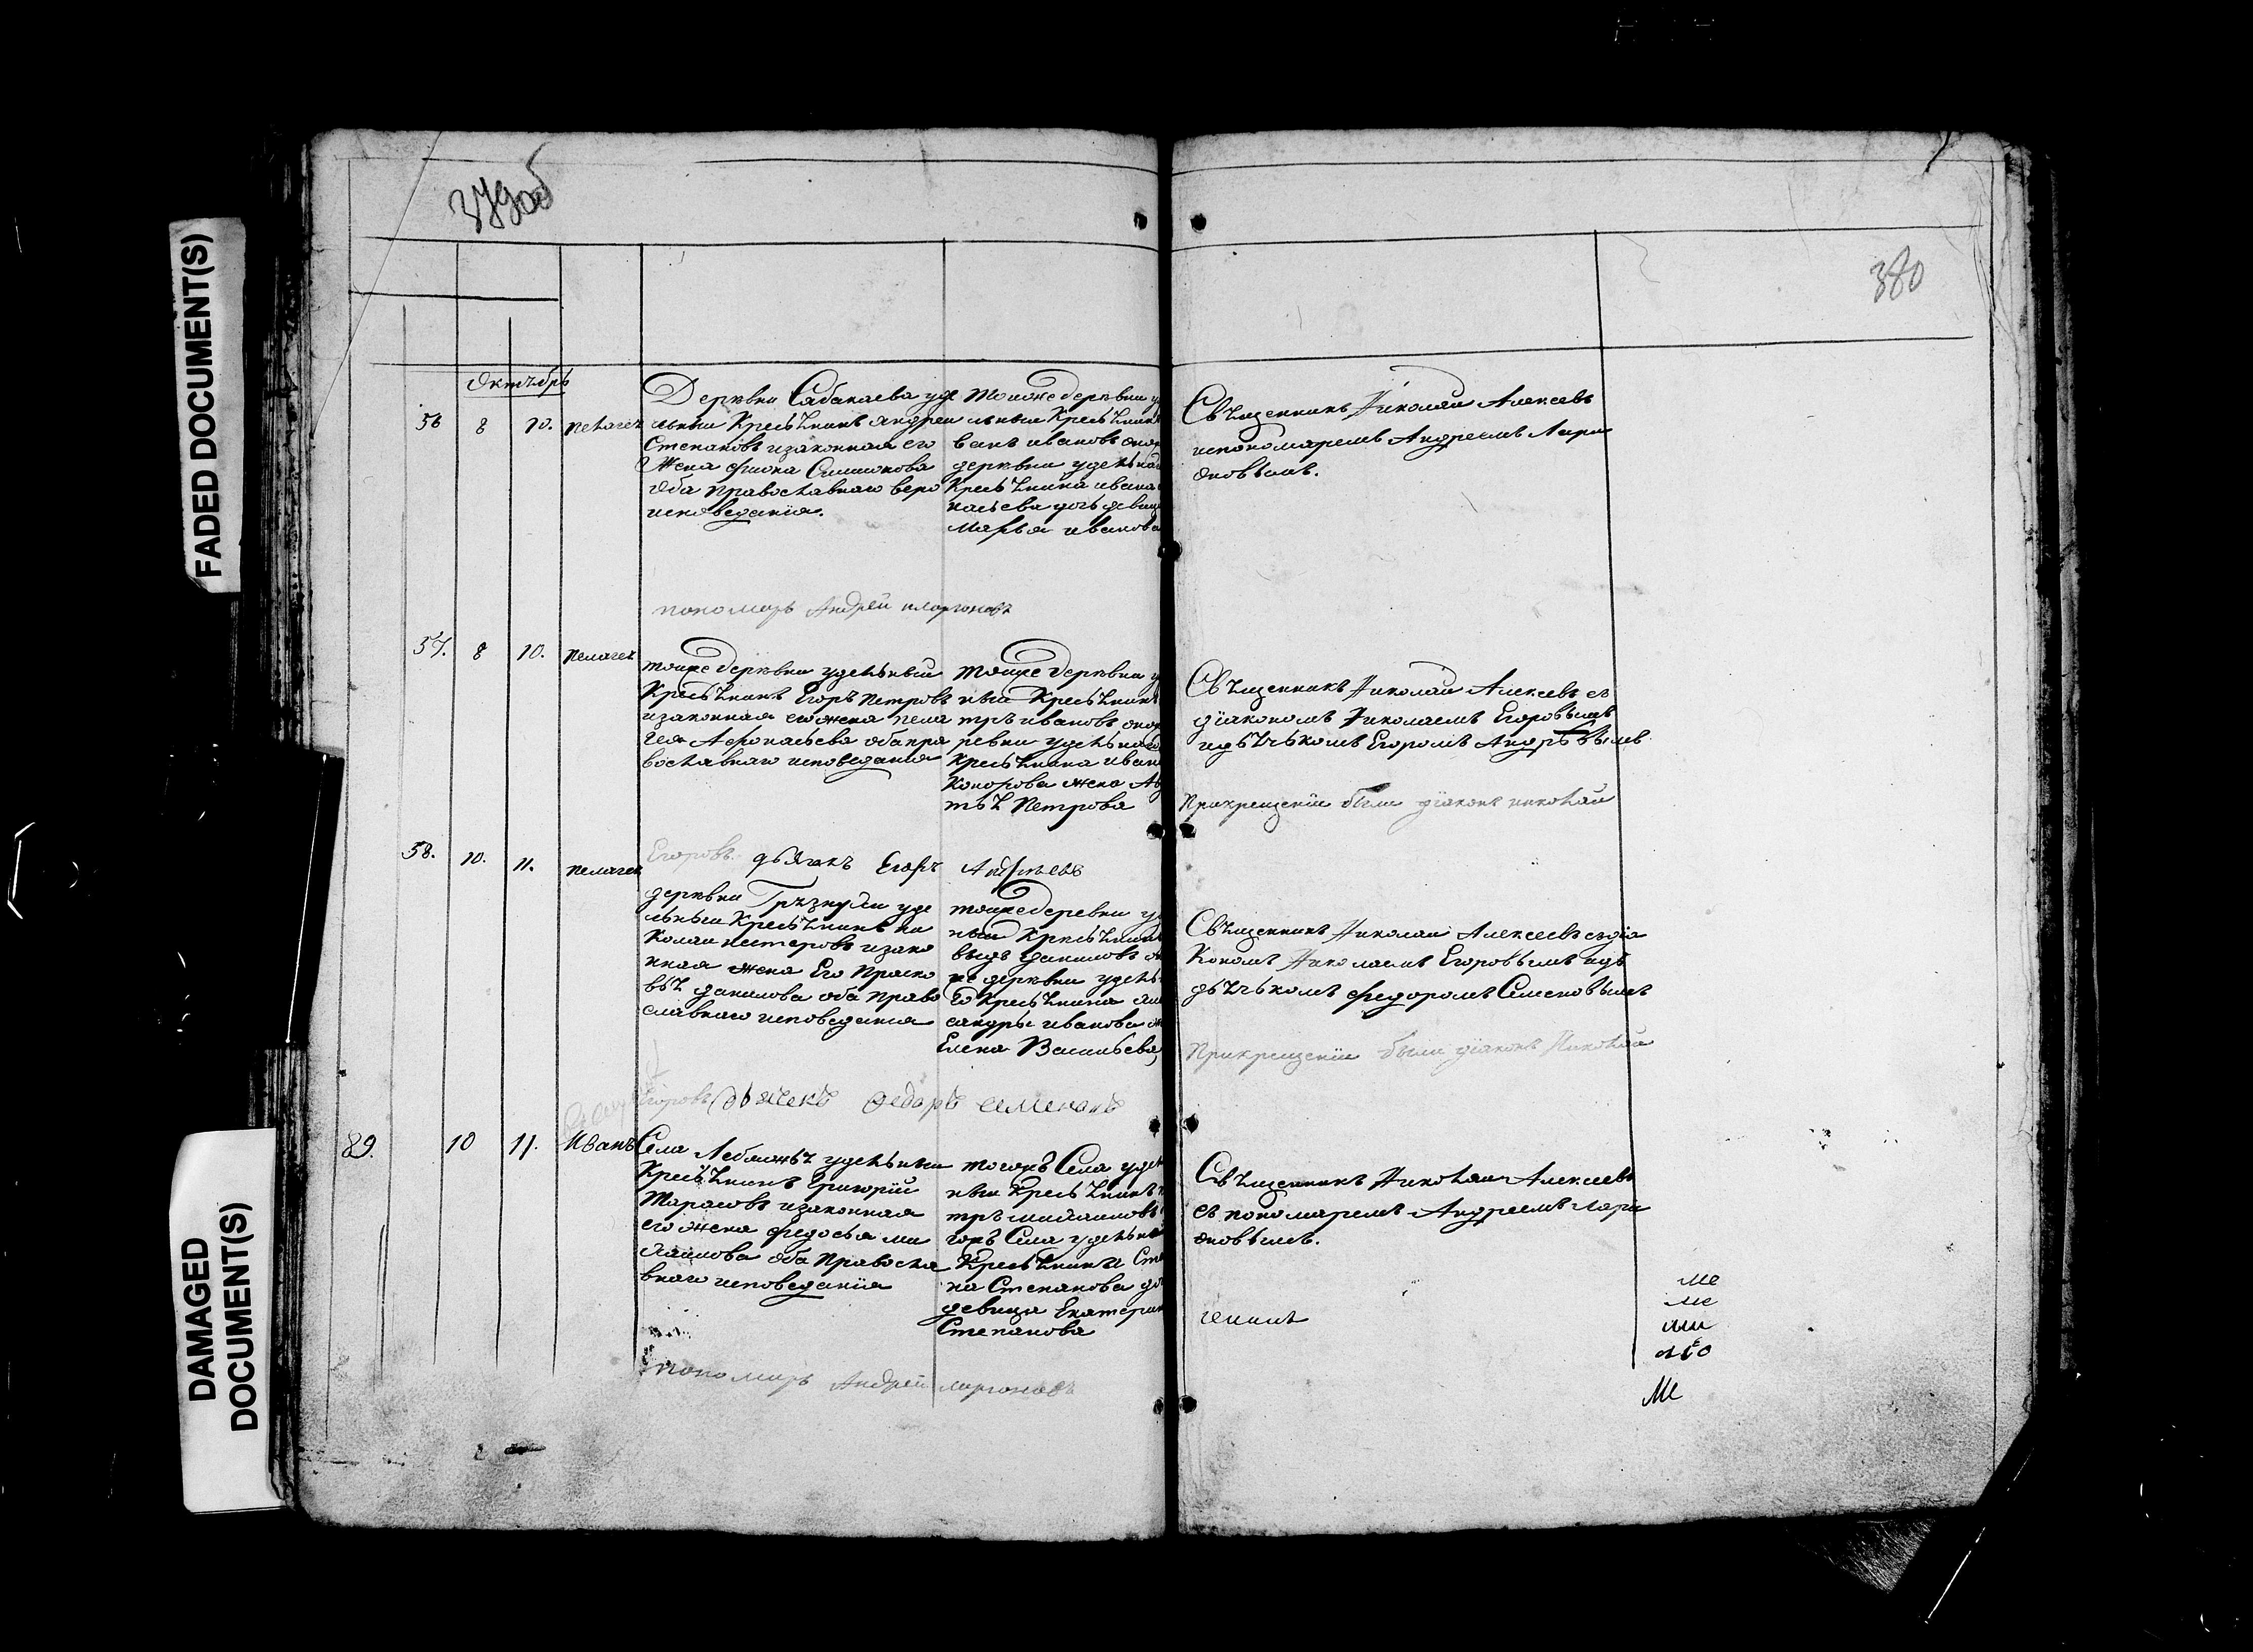 FADED DOCUMENT(S)
DAMAGED DOCUMENT(S)
379об
380
Октябрь
56 8 10. Пелагея
Деревни Сабакаева уде
льныи Крестьянинъ Андреи
Степановъ изаконная его
Жена Фиона Симионова
Оба православнаго веро
исповеданiя.
тоиже деревни у
льныи Крестьянинъ
ванъ ивановъ
деревни удельна
Крестьянина ивана
насьева дочь девица
Марья иванова
Священникъ Николаи Алексеевъ
ипономаремъ Андреемъ Лари
оновымъ.
пономарь Андрей иларионовъ
57. 8 10. Пелагея
тоиже деревни удельный
Крестьянинъ Егоръ Петровъ
изаконная его жена пела
гея Афонасьева оба пра
вославнаго исповеданiя
тоиже деревни у
ный Крестьянинъ
тръ ивановъ
ревни удельнаго
Крестьянина иван
жена Ав
тья Петрова
Священникъ Николаи Алексеевъ съ
дiакономъ Николаемъ Егоровымъ
идьячькомъ Егоромъ Андреевымъ
Прикрещенiи были дiаконъ николай
Егоровъ дьячекъ Егоръ Андреевъ
58. 10. 11. Пелагея
деревни Грязнухи уде
льныи Крестьянинъ ни
колаи нестеровъ изако
нная жена Его Праско
вья данилова оба право
славнаго исповеданiя
тоиже деревни у
ныи Крестьянинъ
выдъ даниловъ
же деревни удель
го Крестьянина
сандры иванова
Елена Васильева
Священникъ Николаи Алексеевъ съ дiа
Кономъ Николаемъ Егоровымъ идь
дьячькомъ Федоромъ Семеновымъ
Прикрещенiи были дiаконъ Николай
Егоровъ дьячекъ Федоръ семеновъ
89. 10 11. Иванъ
Села Лебяжья удельныи
Крестьянинъ григорiй
Тарасовъ изаконная
его жена федосья ми
хаилова оба Правосла
внаго исповеданiя
тогожъ Села удел
ныи Крестьянинъ
тръ михаиловъ
гожъ Села удельна
Крестьянина Сте
на Степанова до
девица Екатерин
Степанова
Священникъ Николаи Алексеевъ
съ пономаремъ Андреемъ Лари
оновымъ.
пономарь Андрей ларионовъ
ме
ме
ми
Ме